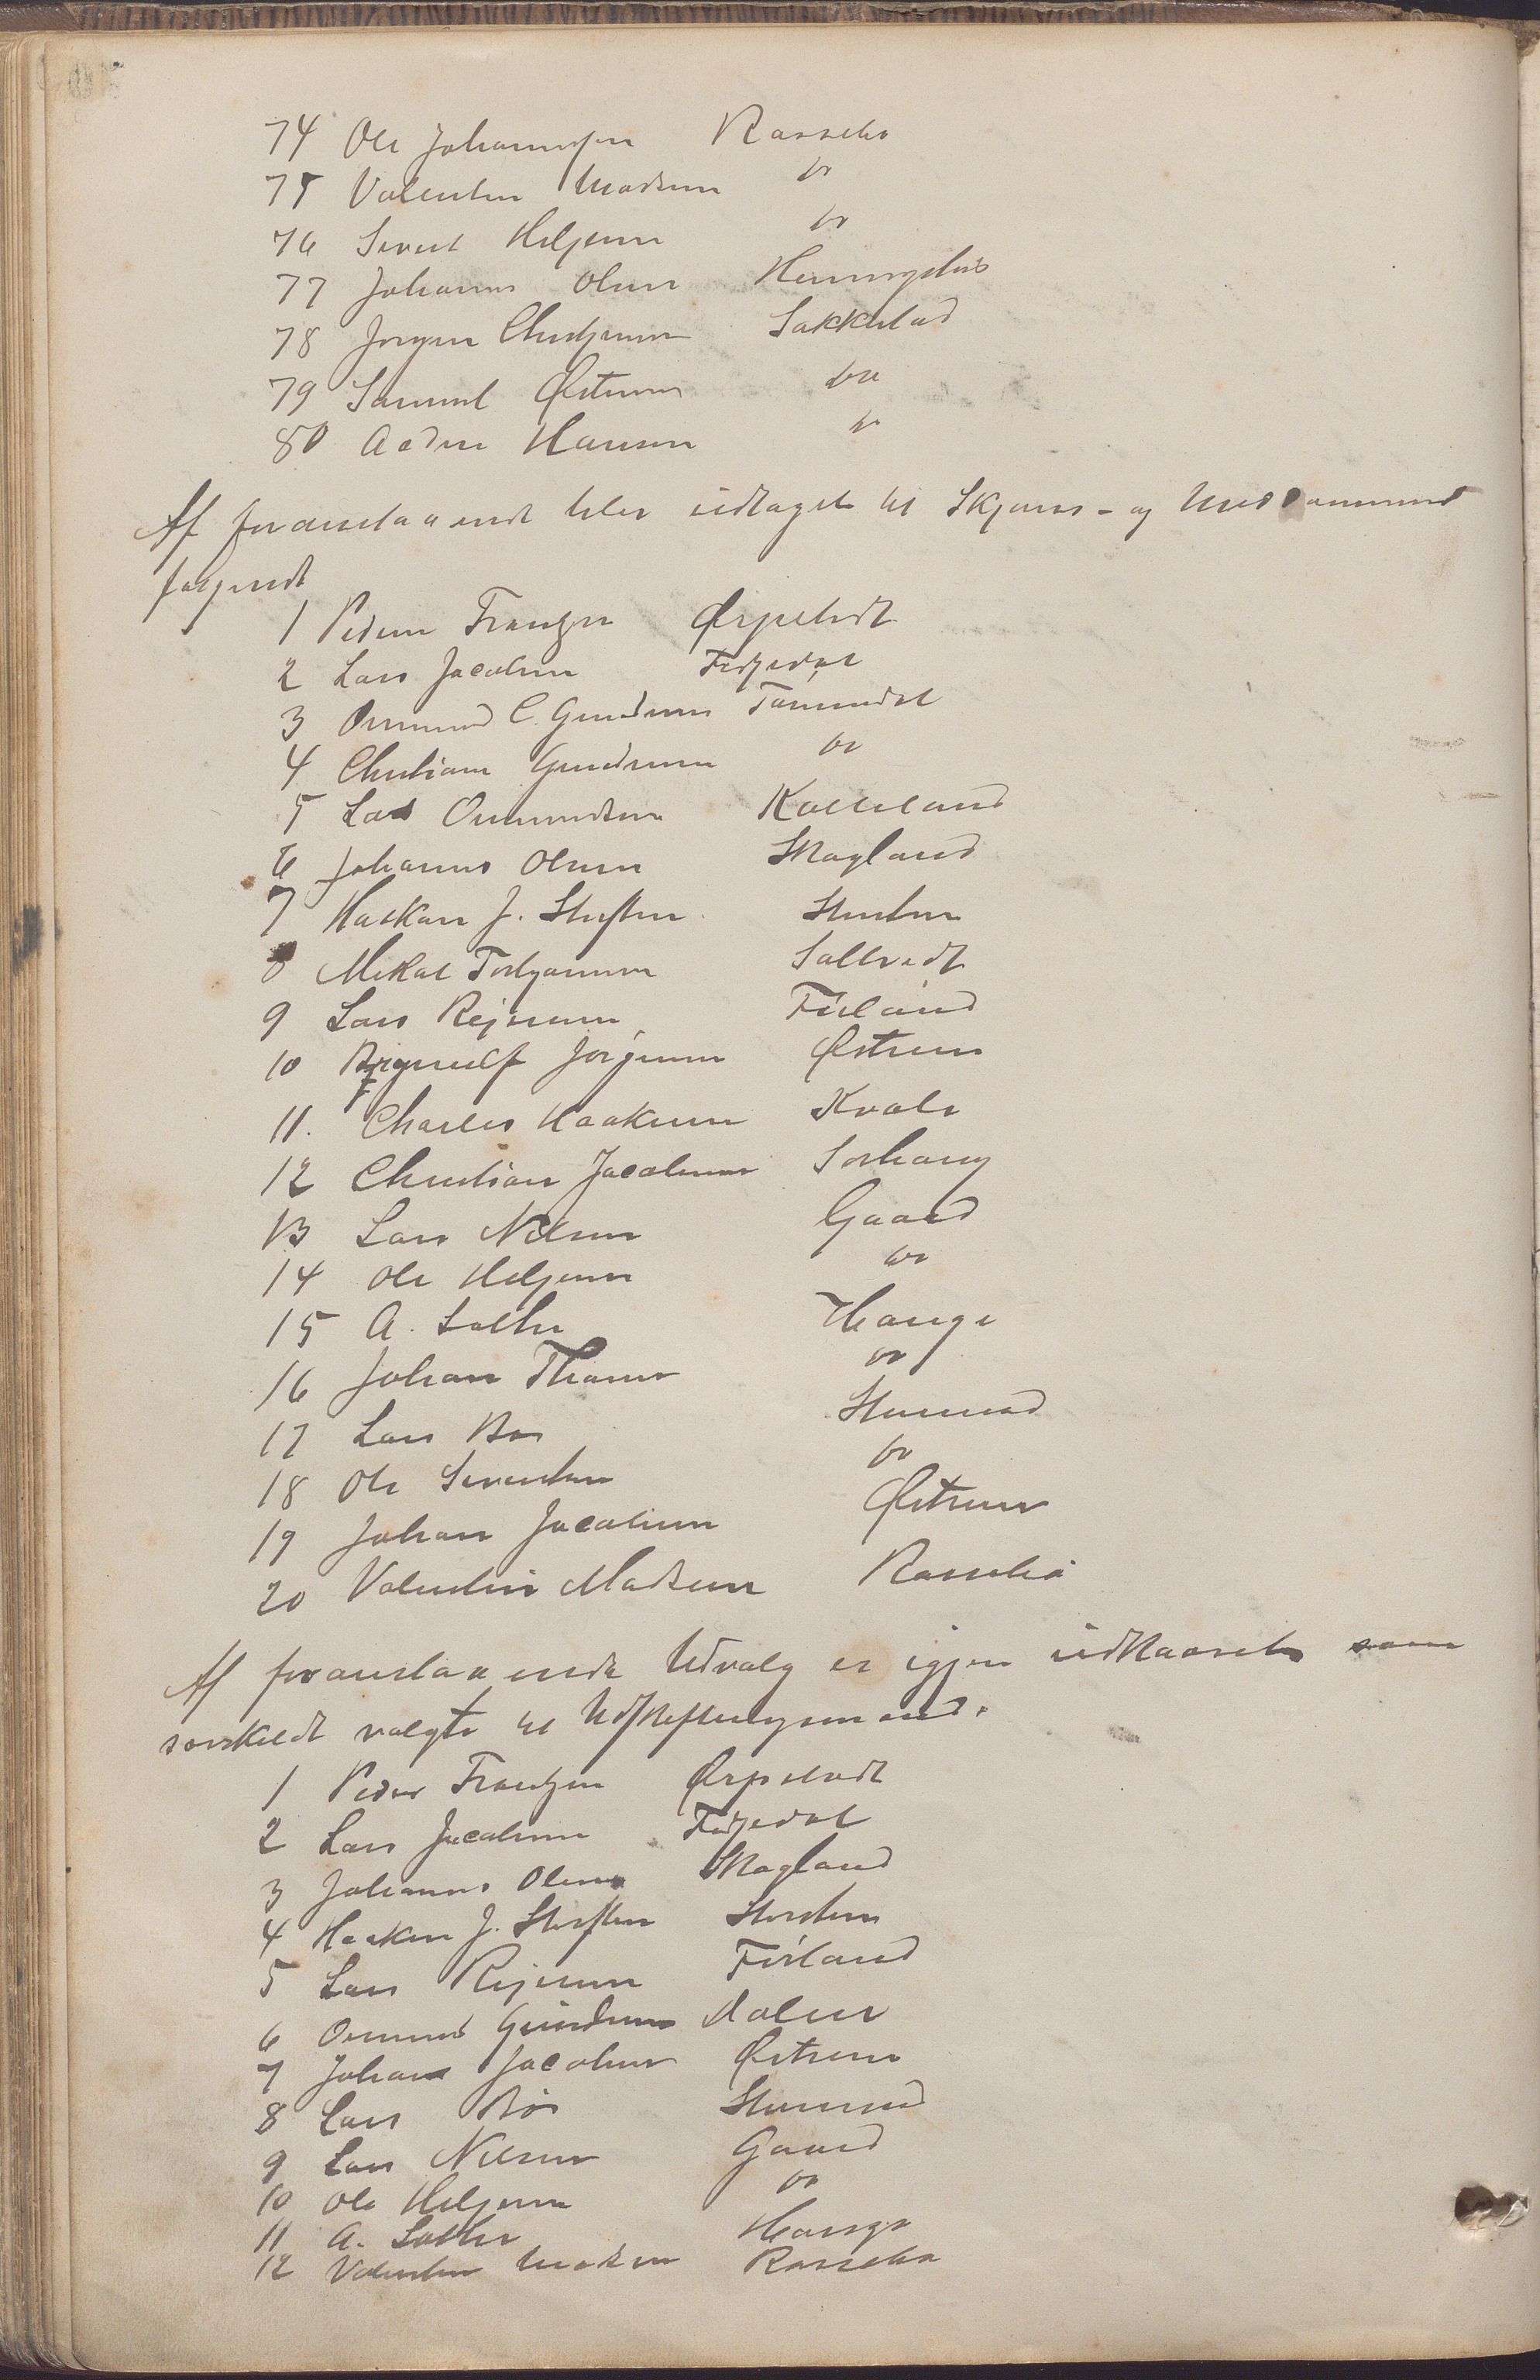 74 Ole Johannesen Rossebø
75 Valentin Madsen do
76 Sivert Helgesen do
77 Johannes Olsen Hemmingstad
78 Jørgen Christensen Sakkestad
79 Samuel Østrem do
80 Aadne Hansen do
Af foranstaaende blev udtaget til Skjøns- og Meddomsmænd
følgende
1 Peder Frantzen Ørpetvedt
2 Lars Jacobsen Fedjedal
3 Ommund C. Gundersen Tømmerdal
4 Christian Gundersen do
5 Lars Ommundsen Kalleland
6 Johannes Olsen Skogland
7 Haakon J. Steensen
8 Mikal Torbjørnsen Saltvedt
9 Lars Rejersen Førland
10 Brynulf Jørgensen Østrem
11. Charles Haakensen Kvala
12 Christian Jacobsen Sørhaug
13 Lars Nilsen Gaard
14 Ole Helgesen do
15 A. Sæther Hauge
16 Johan Thorsen do
17 Lars Bø Stemmed
18 Ole Sivertsen do
19 Johan Jacobsen Østrem
20 Valentin Madsen Rossebø
Af foranstaaende Udvalg er igjen udkaaret som
særskildt valgte til Udskiftningsmænd.
1 Peder Frantzen Ørpetvedt
2 Lars Jacobsen Fedjedal
3 Johannes Olsen Skogland
4 Haakon J.
5 Lars Rejersen Førland
6 Ommund Gundersen Dalen
7 Johan Jacobsen Østrem
8 Lars Bø Stemmed
9 Lars Nilsen Gaard
10 Ole Helgesen do
11 A. Sæther Hauge
12 Valentin Madsen Rossebø